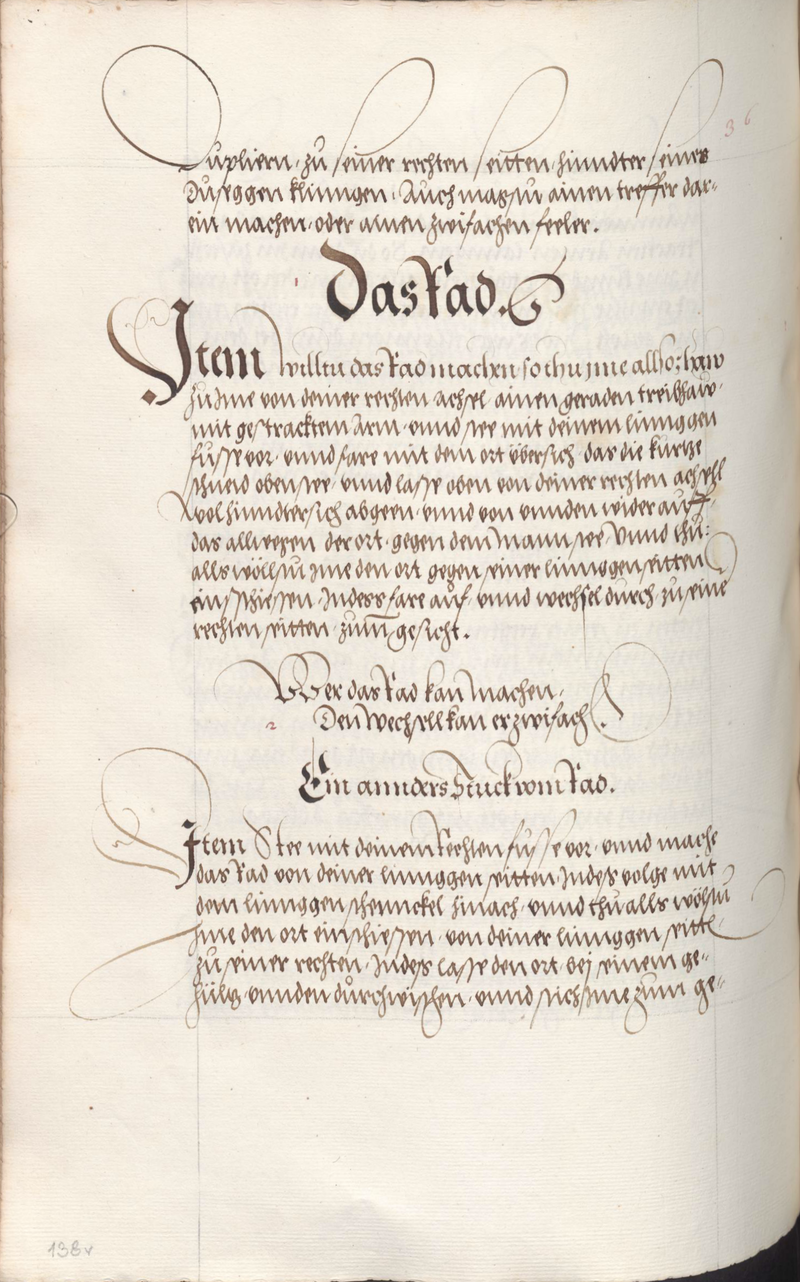 Dupliern, zu seiner rechten seitten, hinndter seines
Duseggen klinngen. Auch magstu ainen treffer dar=
ein machen, oder ainen zwifachen feeler.
Das Rad.
Item willtu das Rad machen so thu jme allso: haw
zu Jme von deiner rechten achsel ainen geraden treibhaw,
mit gestracktem Arm, vnnd stee mit deinem linnggen
fusse vor, vnnd fare mit dem ort übersich, das die kurtze
schneid oben stee, vnnd lasse oben von deiner rechten achsell
wol hinndtersich abgeen, vnnd von vnnden wider auff,
das allwegen der ort, gegen dem Mann stee, Vnnd thu:
alls wöllstu Jme den ort gegen seiner linnggen seitten
einschiessen, Indess fare auf, vnnd wechsel durch zu seine
rechten seitten, zum gesicht.
Wer das Rad kan machen,
Den Wechsell kan er zwifach.
Ein annders Stuck vom Rad.
Item Stee mit deinem Rechten fusse vor, vnnd mache
das Rad von deiner linnggen seitten, Indess volge mit
dem linnggen schennckel hinach, vnnd thu alls wölstu
Jme den ort einschiessen, von deiner linnggen seitt
zu seiner rechten, Indess lasse den ort, bej seinem ge=
hültz, vnnden durchwischen, vnnd stich Jme zum ge=
36
138v